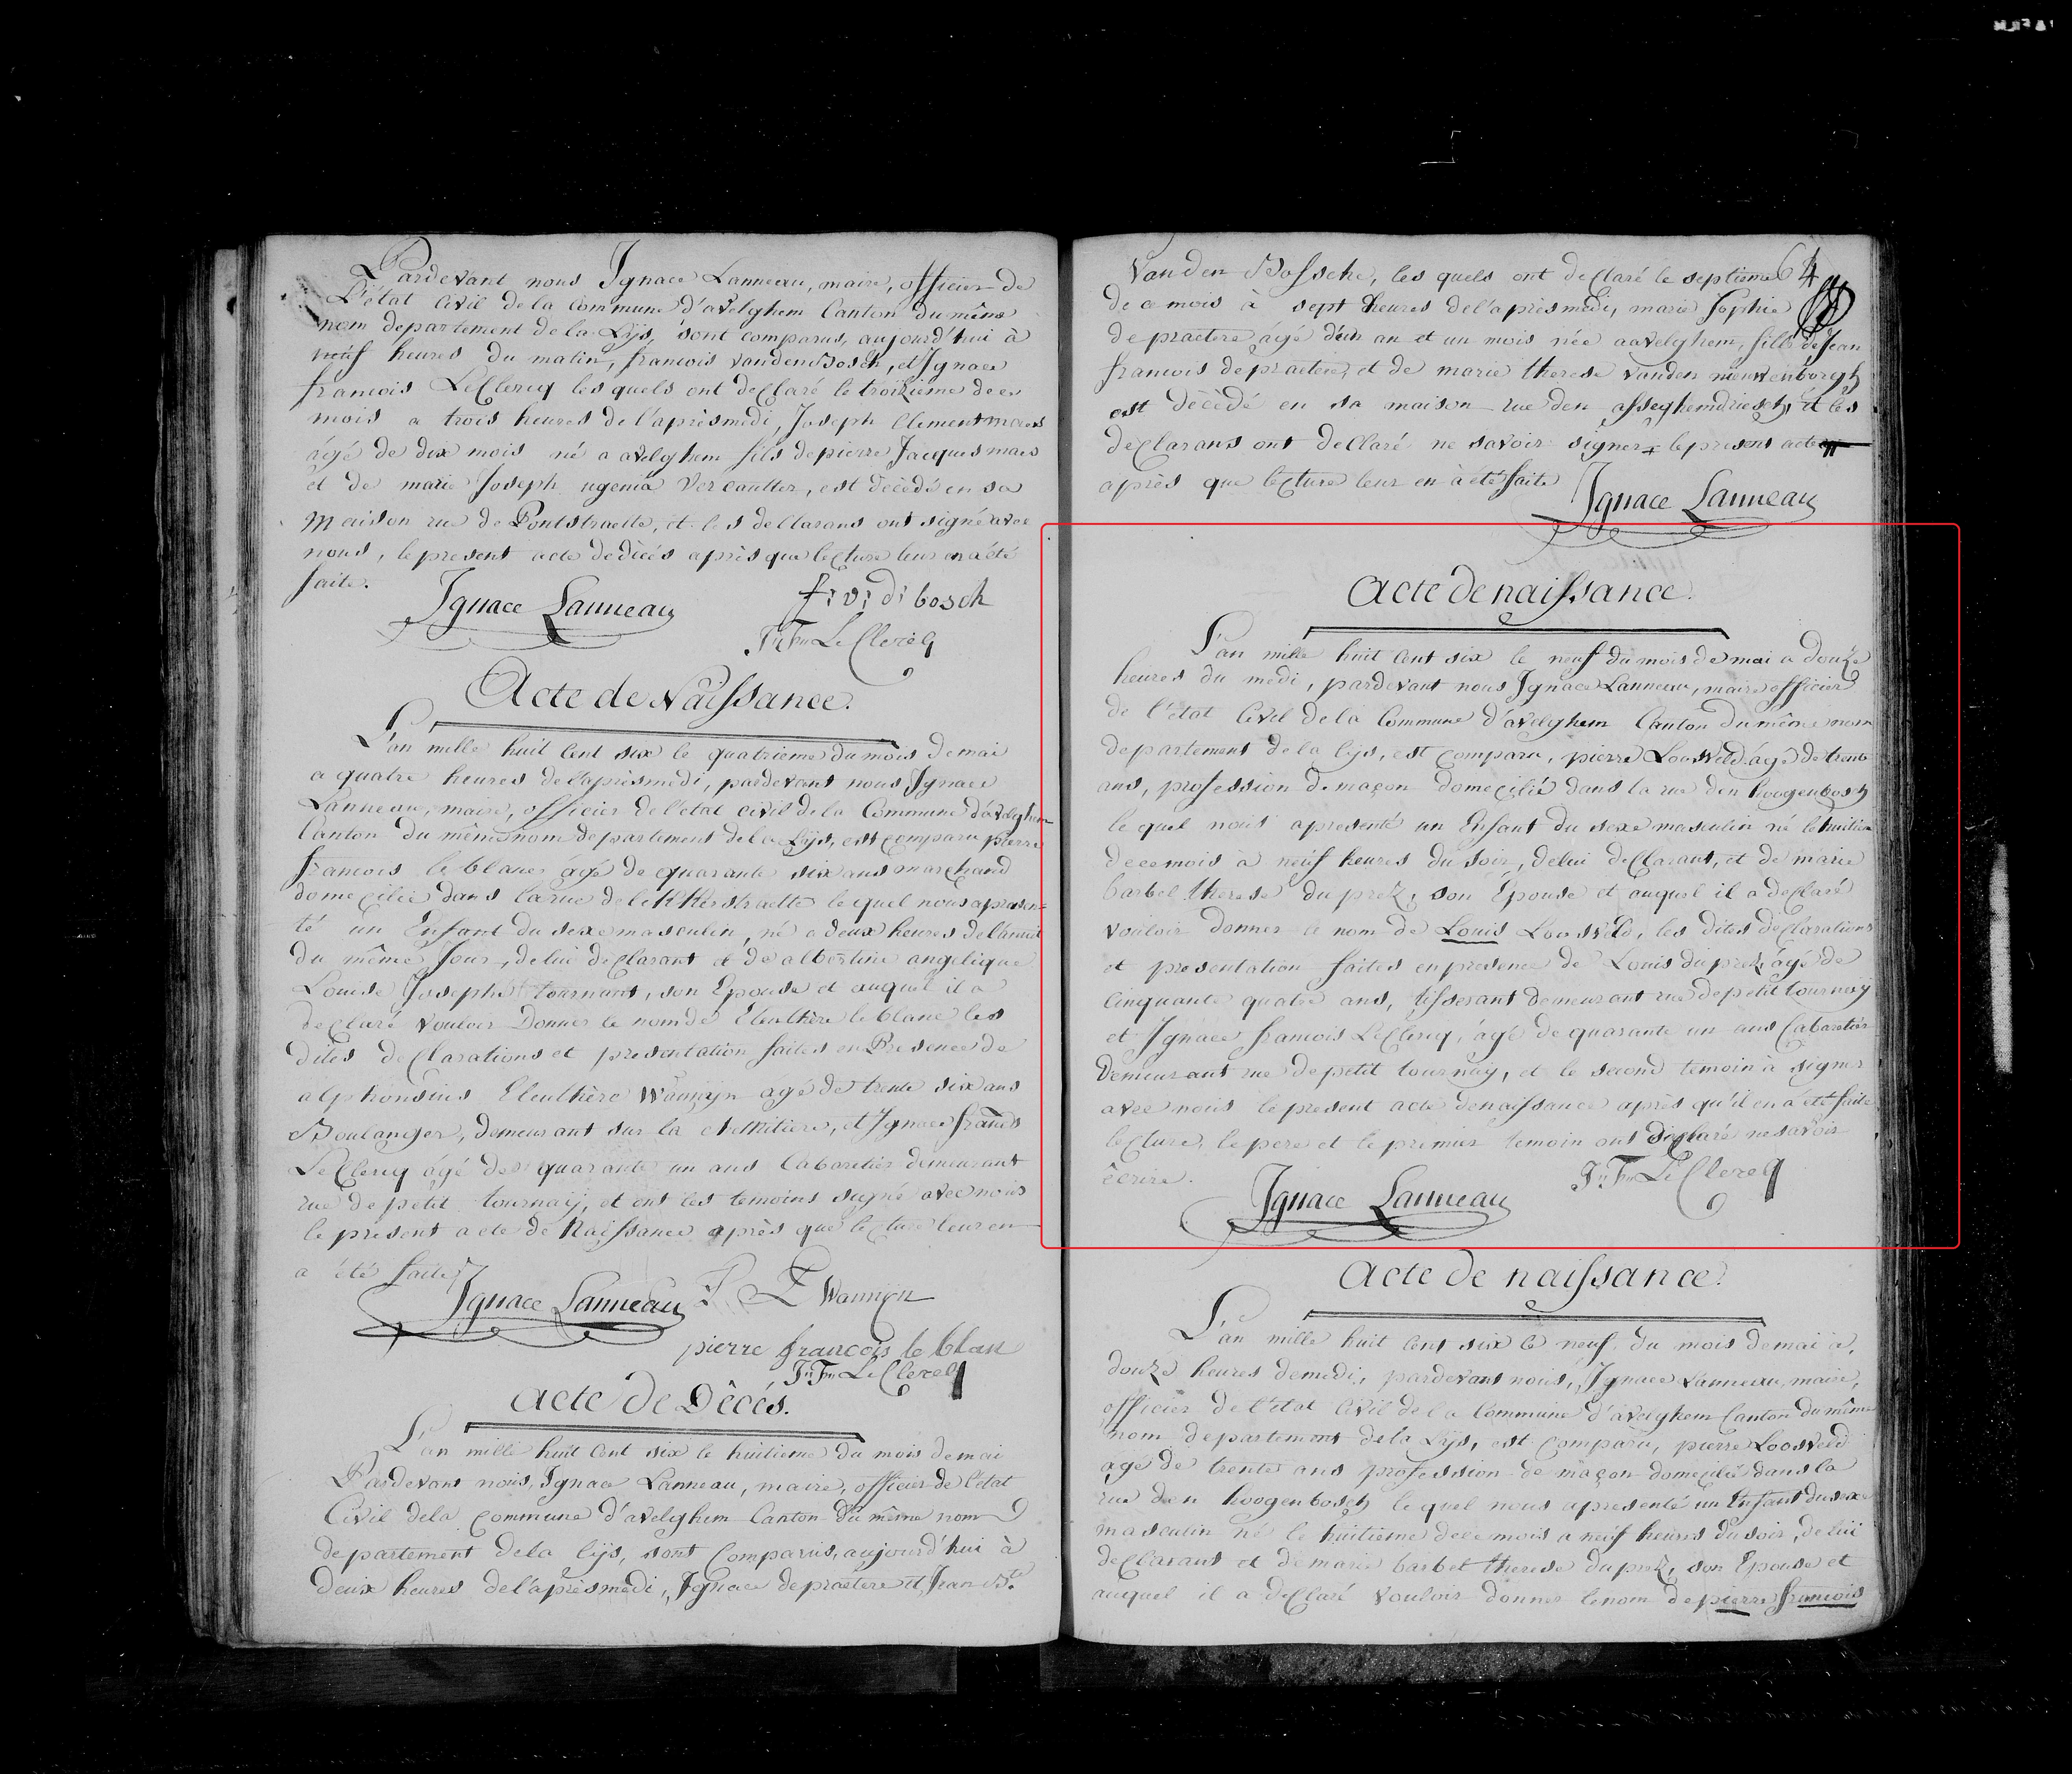 Pardevant nous Ignace Lanneau, maire, officier de
L'état Civil de la Commune d'avelghem Canton du même
nom departement de la Lijs, sont comparus, aujourd'hui à
neuf heures du matin, francois vandenBosch, et Ignace
francois LeClercq les quels ont deClaré le troizieme de ce
mois a trois heures de l'aprèsmedi, Joseph Clement maes
âgé de dix mois né a avelghem fils de pierre Jacques maes
et de marie Joseph ugenia Vercautter, est décédé en sa
Maison rue de Pontstraette, et les declarans ont signé avec
nous, le present acte de décés après que lecture leur en a été
faite.
Ignace Lanneau
f: v: d: bosch
J: Fr: LeClercq
Acte de Naissance.
L'an mille huit cent six le quatrieme du mois de mai
a quatre heures de l'aprèsmedi, pardevant nous Ignace
Lanneau, maire, officier de l'état civil de la Commune d'avelghem
Canton du même nom departement de la Lijs, est comparu pierre
francois le blanc âgé de quarante six ans marchand
domecilié dans la rue de lekkerstraette le quel nous a presen-
té un Enfant du sexe masculin, né a deux heures de
du même Jour, de lui declarant et de albertine angelique
Louise Joseph tournant, son Epouse et auquel il a
declaré vouloir Donner le nom de Eleuthère le blanc les
dites deClarations et presentation faites en Presence de
alphonsius Eleuthère Wannijn âgé de trente six ans
Boulanger, demeurant sur la et Ignace francs
LeClercq âgé de quarante un ans Cabaretier demeurant
rue de petit tournaij, et ont les temoins signé avec nous
le présent acte de Naissance après que lecture leur en
a été faite
Ignace Lanneau
Wannijn
pierre francois le blan
J: Fr: LeClercq
Acte de Décés.
L'an mille huit Cent six le huitieme du mois de mai
Pardevant nous, Ignace Lanneau, maire, officier de l'état
Civil de la Commune d'avelghem Canton du même nom
departement de la lijs, sont Comparus, aujourd'hui à
deux heures de l'aprèsmedi, Ignace depraetere et Jean Bte
64
Vanden Bossche, les quels ont deClaré le septieme
de ce mois à sept heures de l'aprèsmedi, marie Sophie
depraetere âgé d'un an et un mois née a avelghem, fille de Jean
francois depraetere, et de marie therese vanden nieuwenborgh
est décédé en sa maison rue den asseghemdriesch, et les
deClarans ont declaré ne savoir signer le present acte
après que lecture leur en à été faite
Ignace Lanneau
Acte de naissance.
L'an mille huit Cent six le neuf du mois de mai a douze
heures du medi, pardevant nous Ignace Lanneau, maire officier
de l'état Civil de la Commune d'avelghem Canton du même nom
departement de la lijs, est comparu, pierre Loosveld âgé de trente
ans, profession de maçon domecilié dans la rue den hoogenbosch
le quel nous apresenté un Enfant du sexe masculin né le huitième
de ce mois à neuf heures du soir, de lui deClarant, et de marie
barbel therese duprez, son Epouse et auquel il a declaré
vouloir donner le nom de Louis Loosveld, les dites deClarations
et presentation faites en presence de Louis duprez, âgé de
Cinquante quatre ans, tisserant demeurant rue de petit tournaij
et Ignace francois LeClercq, âgé de quarante un ans Cabaretier
Demeurant rue de petit tournaij, et le second temoin à signer
avec nous le present acte de naissance après qu'il en a été faite
lecture, le pere et le premier temoin ont declaré ne savoir
écrire.
Ignace Lanneau
J: Fr: LeClercq
Acte de naissance.
L'an mille huit Cent six le neuf du mois de mai à
douze heures de medi, pardevant nous, Ignace Lanneau, maire,
officier de l'état Civil de la Commune d'avelghem Canton du même
nom departement de la Lijs, est comparu, pierre Loosveld
âgé de trente ans profession de maçon domecilié dans la
rue den hoogenbosch le quel nous apresenté un Enfant du sexe
masculin né le huitieme de ce mois a neuf heures du soir, de lui
deClarant et de marie barbet therese duprez, son Epouse et
auquel il a deClaré vouloir donner le nom de pierre francois